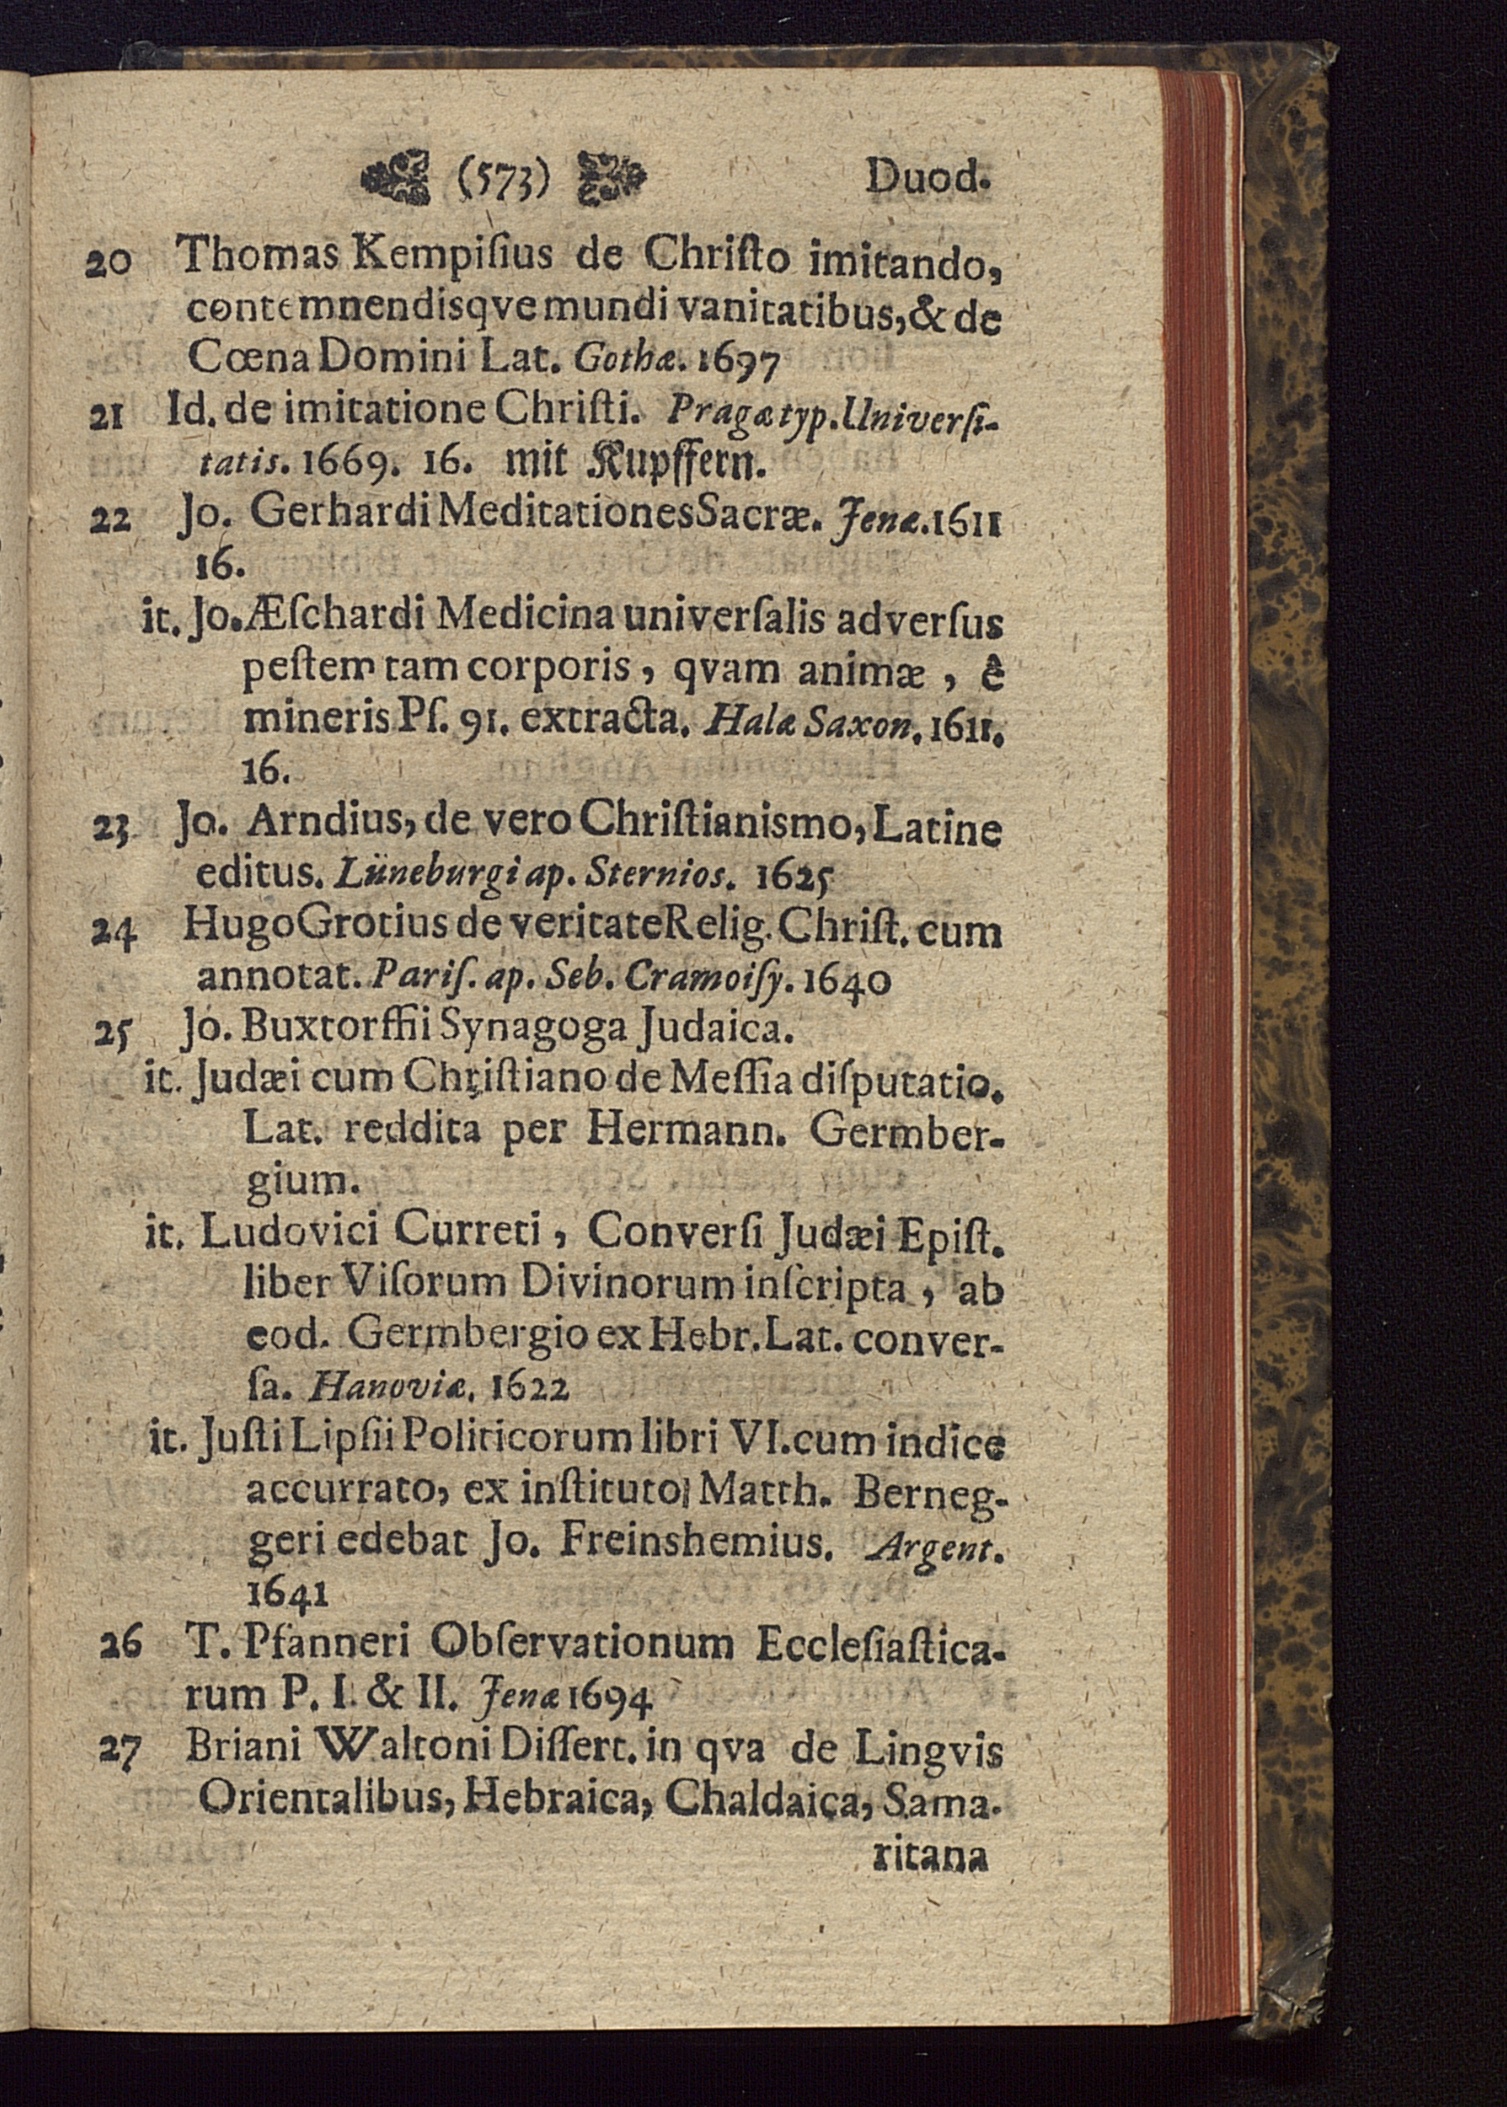 (573) Duod.
20 Thomas Kempiſius de Chriſto imitando,
contemnendisqve mundi vanitatibus, & de
Cœna Domini Lat. Gothæ. 1697
21 Id. de imitatione Chriſti. Pragæ typ. Univerſi-
tatis. 1669. 16. mit Kupffern.
22 Jo. Gerhardi Meditationes Sacræ. Jenæ. 1611
16.
it. Jo. Æſchardi Medicina univerſalis adverſus
peſtem tam corporis, qvam animæ, ê
mineris Pſ. 91. extracta. Halæ Saxon. 1611.
16.
23 Jo. Arndius, de vero Chriſtianismo, Latine
editus. Lüneburgi ap. Sternios. 1625
24 Hugo Grotius de veritate Relig. Chriſt. cum
annotat. Pariſ. ap. Seb. Cramoiſy. 1640
25 Jo. Buxtorffii Synagoga Judaica.
it. Judæi cum Chriſtiano de Meſſia diſputatio.
Lat. reddita per Hermann. Germber-
gium.
it. Ludovici Curreti, Converſi Judæi Epiſt.
liber Viſorum Divinorum inſcripta, ab
eod. Germbergio ex Hebr. Lat. conver-
ſa. Hanoviæ. 1622
it. Juſti Lipſii Politicorum libri VI. cum indice
accurrato, ex inſtituto Matth. Berneg-
geri edebat Jo. Freinshemius. Argent.
1641
26 T. Pfanneri Obſervationum Eccleſiaſtica-
rum P. I. & II. Jenæ 1694
27 Briani Waltoni Diſſert. in qva de Lingvis
Orientalibus, Hebraica, Chaldaica, Sama-
ritana